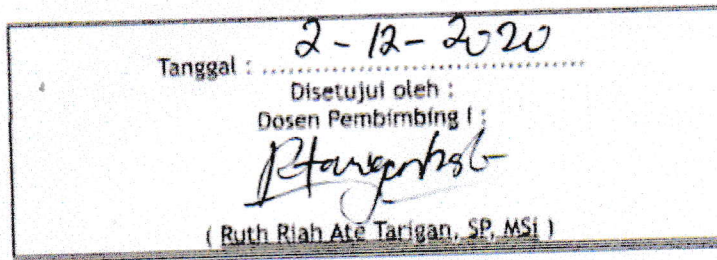 Tanggal : 2 - 12 - 2020
Disetujui oleh :
Dosen Pembimbing I :
( Ruth Riah Ate Tarigan, SP, MSi )